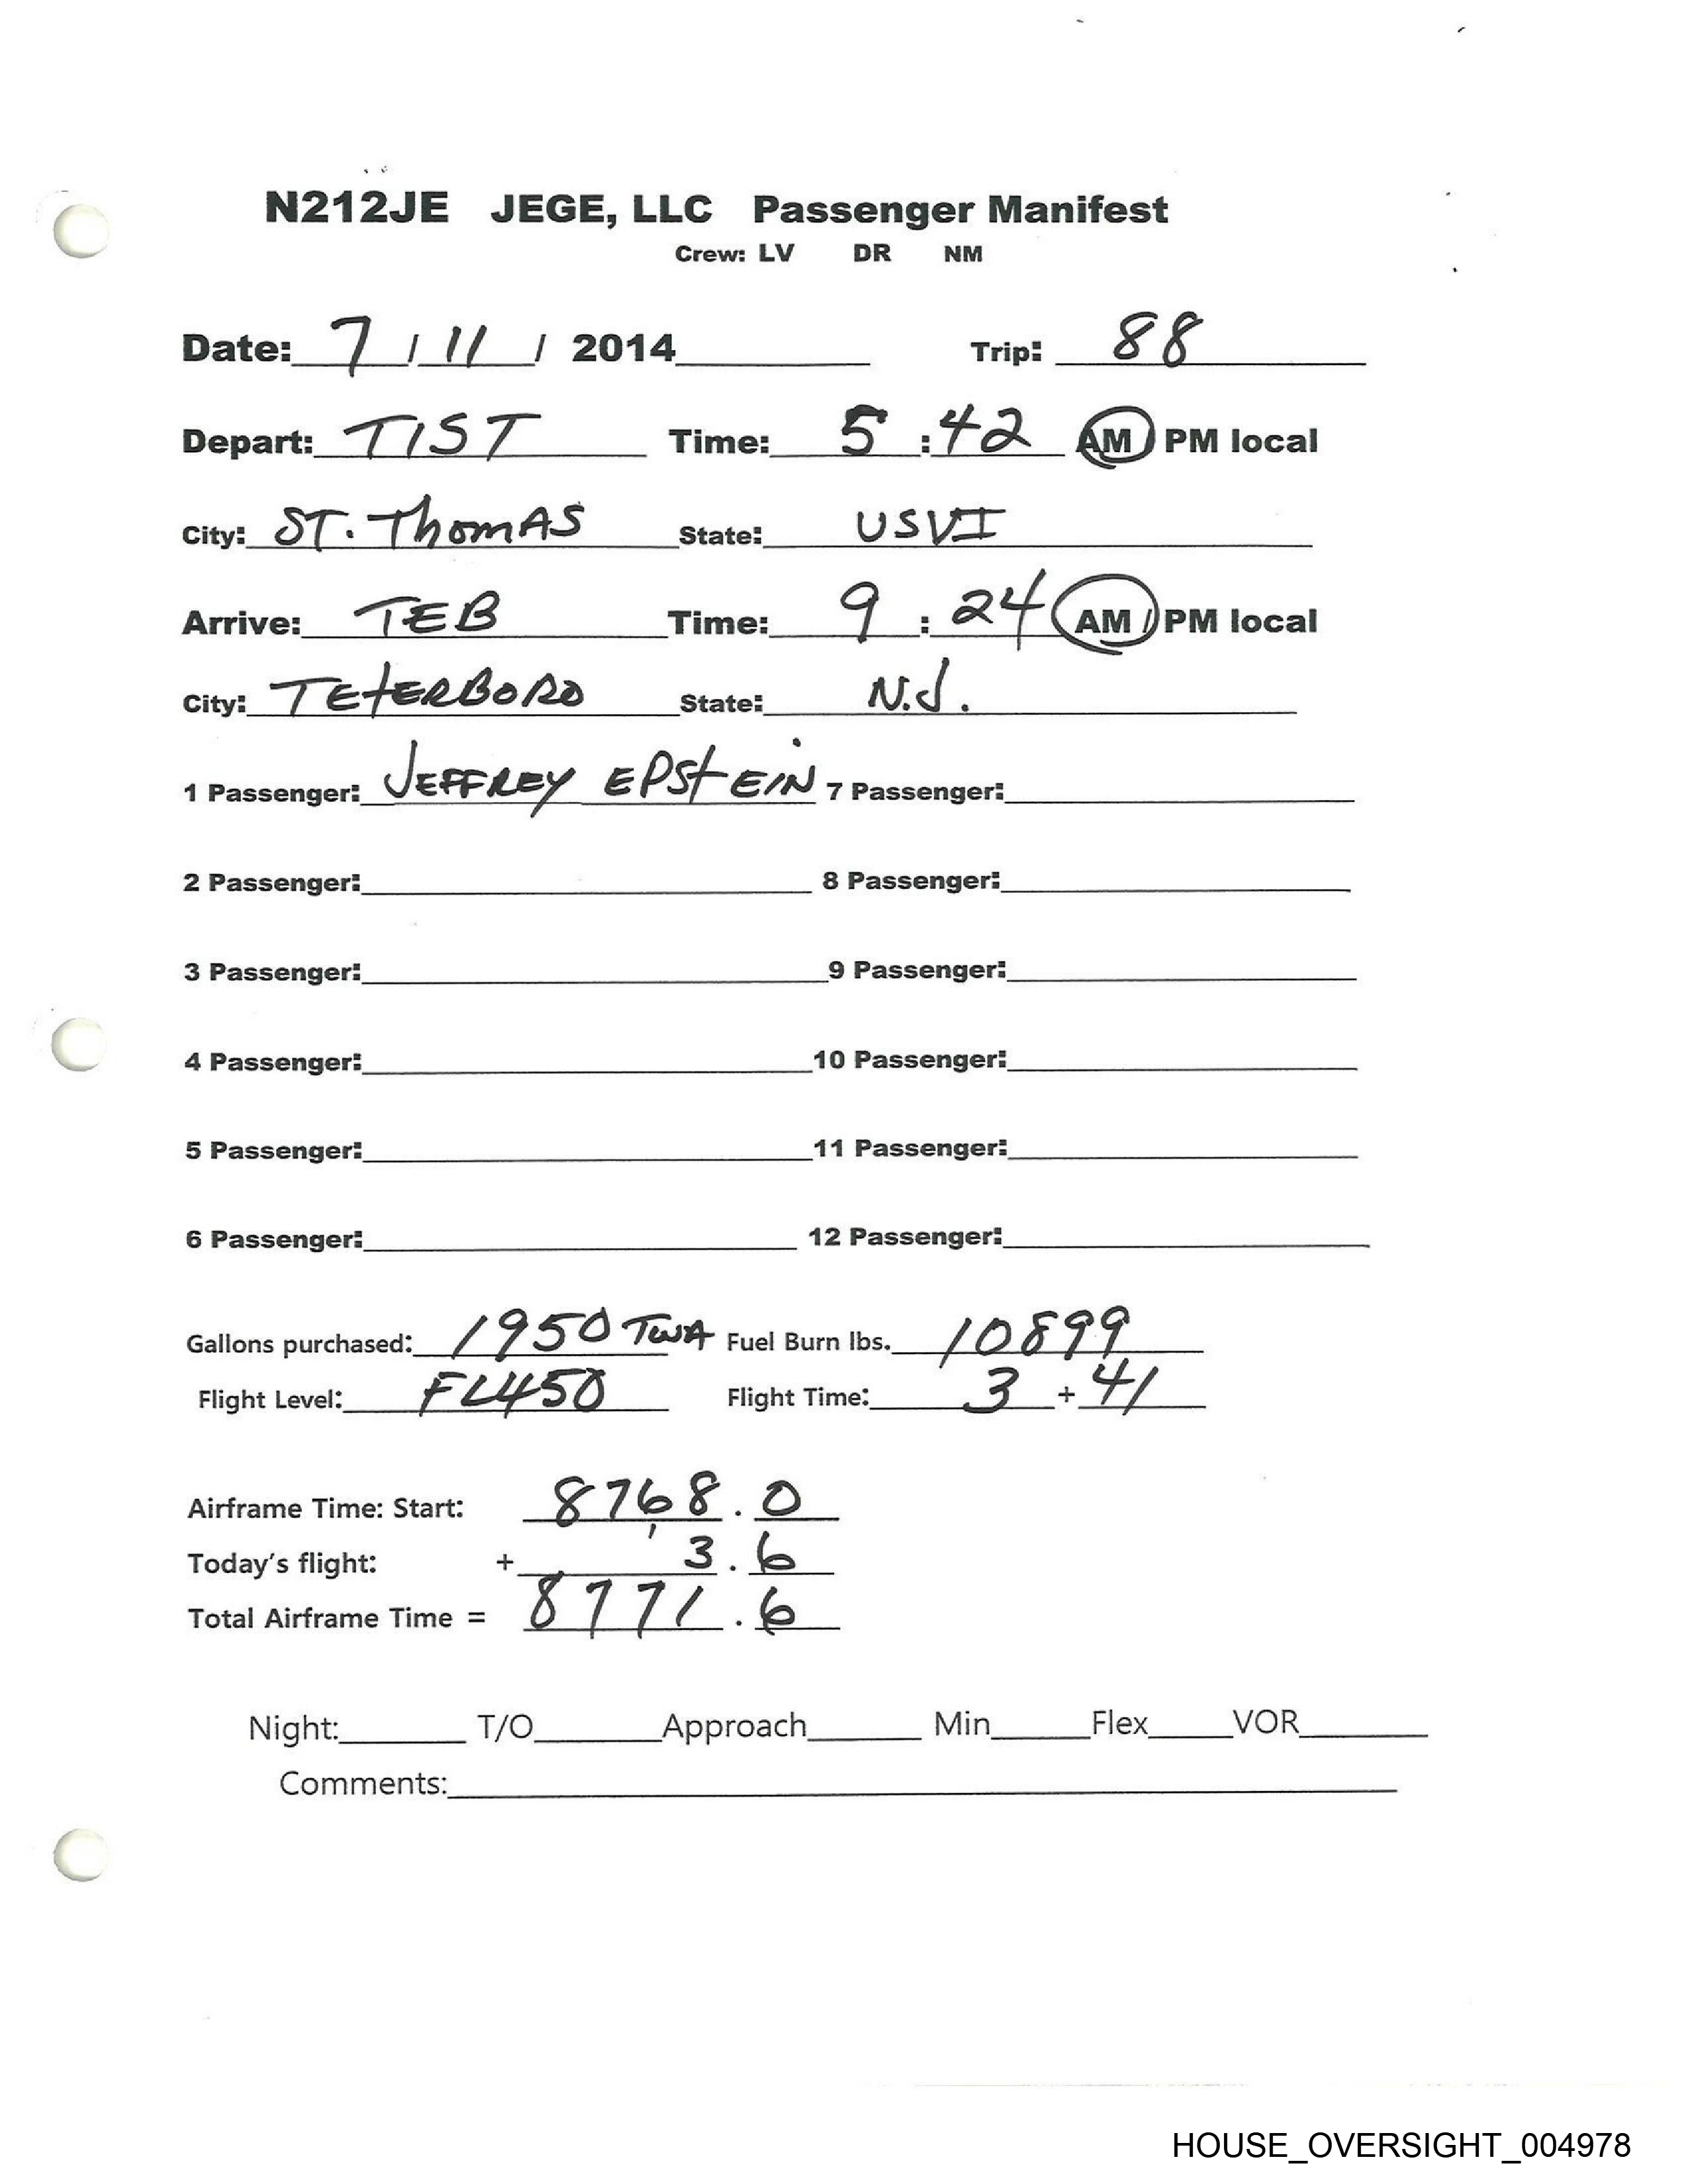 N212JE JEGE, LLC Passenger Manifest
Crew: LV DR NM
Date: 7 / 11 / 2014 Trip: 88
Depart: TIST Time: 5 : 42 AM / PM local
City: ST. ThomAS State: USVI
Arrive: TEB Time: 9 : 24 AM / PM local
City: TETERBORO State: N.J.
1 Passenger: JEFFREY EPSTEIN 7 Passenger:
2 Passenger: 8 Passenger:
3 Passenger: 9 Passenger:
4 Passenger: 10 Passenger:
5 Passenger: 11 Passenger:
6 Passenger: 12 Passenger:
Gallons purchased: 1950 TWA Fuel Burn lbs. 10899
Flight Level: FL450 Flight Time: 3 + 41
Airframe Time: Start: 8768 . 0
Today's flight: + 3 . 6
Total Airframe Time = 8771 . 6
Night: T/O Approach Min Flex VOR
Comments:
HOUSE_OVERSIGHT_004978